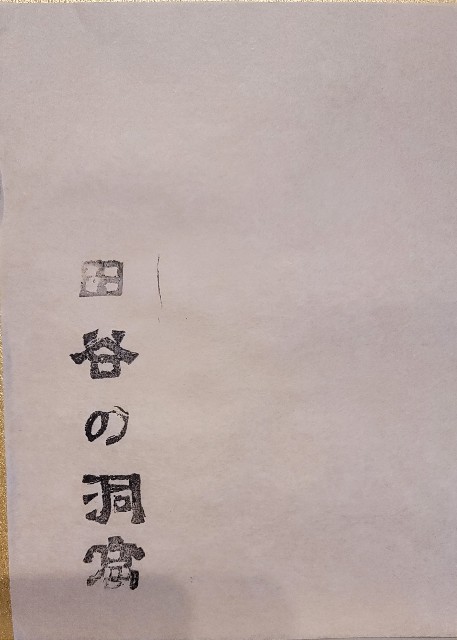 田谷の洞窟